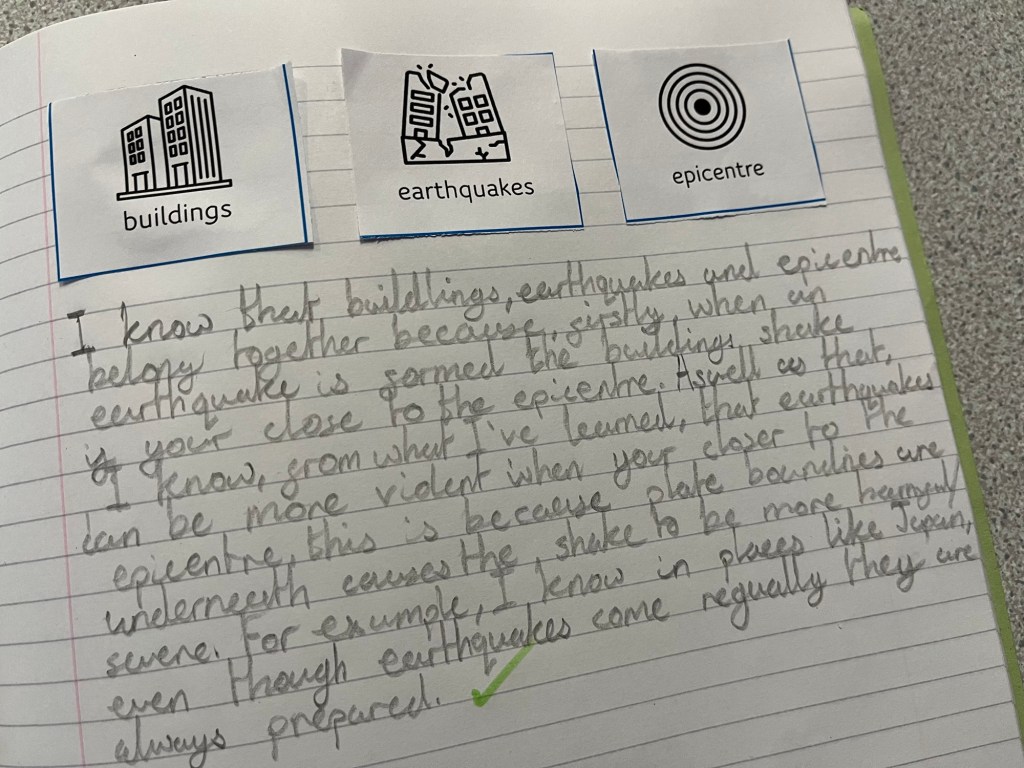 buildings
earthquakes
epicentre
I know that buildlings, earthquakes and epicentre
belong together because, firstly, when an
earthquake is formed the buildings shake
if your close to the epicentre. Aswell as that,
I know, from what I've learned, that earthquakes
can be more violent when your closer to the
epicentre, this is because plate boundries are
underneath causes the shake to be more harmful/
severe. For example, I know in places like Japan,
even though earthquakes come regually they are
always prepared.